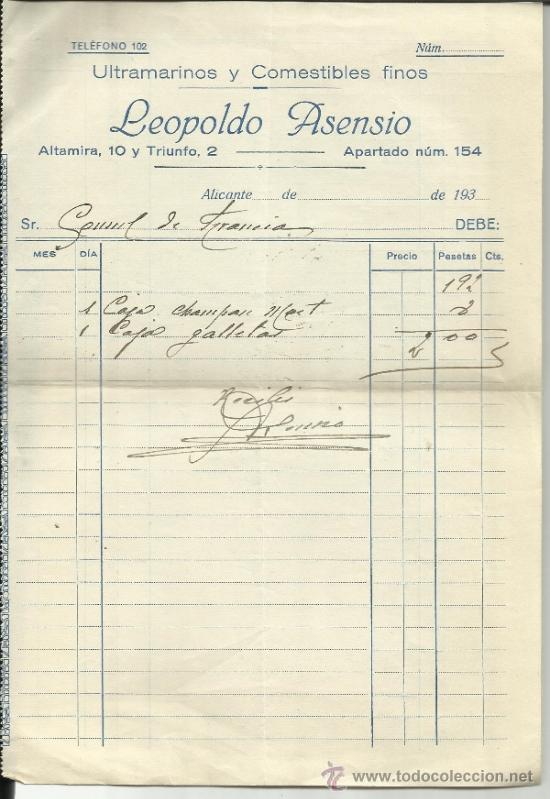 TELÉFONO 102
Núm.
Ultramarinos y Comestibles finos
Leopoldo Asensio
Altamira, 10 y Triunfo, 2
Apartado núm. 154
Alicante de de 193
Sr. Consul de Francia DEBE:
MES DÍA Precio Pesetas Cts.
192
1 Caja champan Moet 8
1 Caja galletas
200
Recibi
Asensio
todocoleccion
www.todocoleccion.net